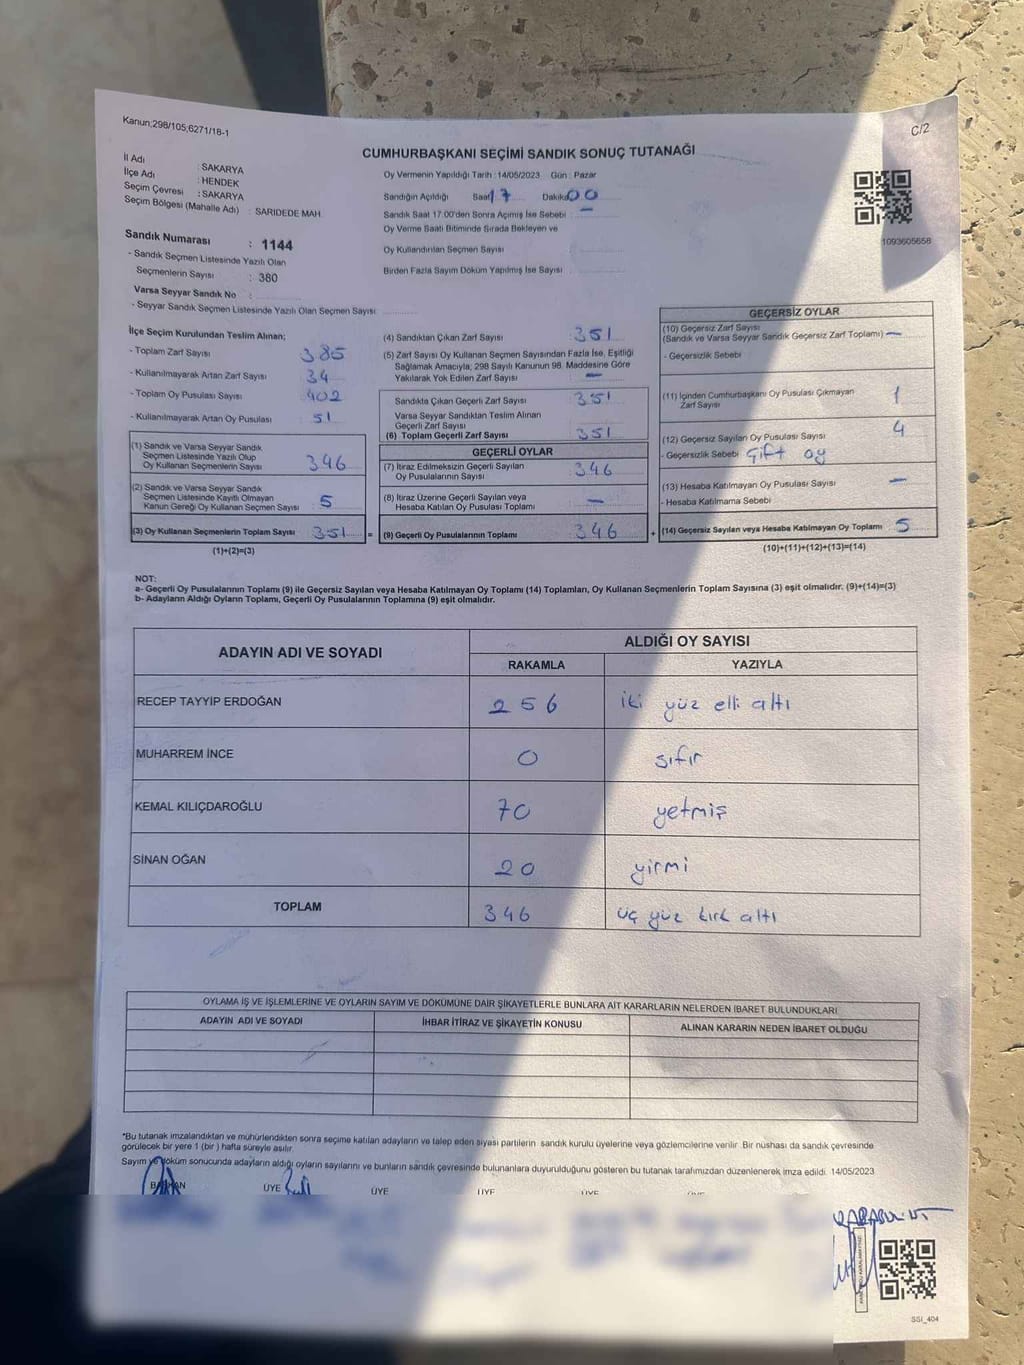 Kanun;298/105;6271/18-1
C/2
CUMHURBAŞKANI SEÇİMİ SANDIK SONUÇ TUTANAĞI
İl Adı : SAKARYA
İlçe Adı : HENDEK
Seçim Çevresi : SAKARYA
Seçim Bölgesi (Mahalle Adı) : SARIDEDE MAH.
Oy Vermenin Yapıldığı Tarih : 14/05/2023 Gün : Pazar
Sandığın Açıldığı Saat 17 Dakika 00
Sandık Saat 17.00'den Sonra Açılmış İse Sebebi : —
Oy Verme Saati Bitiminde Sırada Bekleyen ve
Oy Kullandırılan Seçmen Sayısı :
Birden Fazla Sayım Döküm Yapılmış İse Sayısı :
1093605658
Sandık Numarası : 1144
- Sandık Seçmen Listesinde Yazılı Olan
Seçmenlerin Sayısı : 380
Varsa Seyyar Sandık No :
- Seyyar Sandık Seçmen Listesinde Yazılı Olan Seçmen Sayısı
İlçe Seçim Kurulundan Teslim Alınan;
- Toplam Zarf Sayısı 385
- Kullanılmayarak Artan Zarf Sayısı 34
- Toplam Oy Pusulası Sayısı 402
- Kullanılmayarak Artan Oy Pusulası 51
(1) Sandık ve Varsa Seyyar Sandık
Seçmen Listesinde Yazılı Olup
Oy Kullanan Seçmenlerin Sayısı 346
(2) Sandık ve Varsa Seyyar Sandık
Seçmen Listesinde Kayıtlı Olmayan
Kanun Gereği Oy Kullanan Seçmen Sayısı 5
(3) Oy Kullanan Seçmenlerin Toplam Sayısı 351 =
(1)+(2)=(3)
(4) Sandıktan Çıkan Zarf Sayısı 351
(5) Zarf Sayısı Oy Kullanan Seçmen Sayısından Fazla İse, Eşitliği
Sağlamak Amacıyla; 298 Sayılı Kanunun 98. Maddesine Göre
Yakılarak Yok Edilen Zarf Sayısı —
Sandıkta Çıkan Geçerli Zarf Sayısı 351
Varsa Seyyar Sandıktan Teslim Alınan
Geçerli Zarf Sayısı
(6) Toplam Geçerli Zarf Sayısı 351
GEÇERLİ OYLAR
(7) İtiraz Edilmeksizin Geçerli Sayılan
Oy Pusulalarının Sayısı 346
(8) İtiraz Üzerine Geçerli Sayılan veya
Hesaba Katılan Oy Pusulası Toplamı —
(9) Geçerli Oy Pusulalarının Toplamı 346 +
GEÇERSİZ OYLAR
(10) Geçersiz Zarf Sayısı
(Sandık ve Varsa Seyyar Sandık Geçersiz Zarf Toplamı) —
- Geçersizlik Sebebi
(11) İçinden Cumhurbaşkanı Oy Pusulası Çıkmayan
Zarf Sayısı 1
(12) Geçersiz Sayılan Oy Pusulası Sayısı 4
- Geçersizlik Sebebi Çift oy
(13) Hesaba Katılmayan Oy Pusulası Sayısı —
- Hesaba Katılmama Sebebi
(14) Geçersiz Sayılan veya Hesaba Katılmayan Oy Toplamı 5
(10)+(11)+(12)+(13)=(14)
NOT:
a- Geçerli Oy Pusulalarının Toplamı (9) ile Geçersiz Sayılan veya Hesaba Katılmayan Oy Toplamı (14) Toplamları, Oy Kullanan Seçmenlerin Toplam Sayısına (3) eşit olmalıdır. (9)+(14)=(3)
b- Adayların Aldığı Oyların Toplamı, Geçerli Oy Pusulalarının Toplamına (9) eşit olmalıdır.
ADAYIN ADI VE SOYADI
ALDIĞI OY SAYISI
RAKAMLA YAZIYLA
RECEP TAYYİP ERDOĞAN 256 iki yüz elli altı
MUHARREM İNCE 0 sıfır
KEMAL KILIÇDAROĞLU 70 yetmiş
SİNAN OĞAN 20 yirmi
TOPLAM 346 üç yüz kırk altı
OYLAMA İŞ VE İŞLEMLERİNE VE OYLARIN SAYIM VE DÖKÜMÜNE DAİR ŞİKAYETLERLE BUNLARA AİT KARARLARIN NELERDEN İBARET BULUNDUKLARI
ADAYIN ADI VE SOYADI İHBAR İTİRAZ VE ŞİKAYETİN KONUSU ALINAN KARARIN NEDEN İBARET OLDUĞU
*Bu tutanak imzalandıktan ve mühürlendikten sonra seçime katılan adayların ve talep eden siyasi partilerin sandık kurulu üyelerine veya gözlemcilerine verilir. Bir nüshası da sandık çevresinde
görülecek bir yere 1 (bir) hafta süreyle asılır.
Sayım ve döküm sonucunda adayların aldığı oyların sayılarını ve bunların sandık çevresinde bulunanlara duyurulduğunu gösteren bu tutanak tarafımızdan düzenlenerek imza edildi. 14/05/2023
BAŞKAN ÜYE ÜYE ÜYE ÜYE
SSI_404